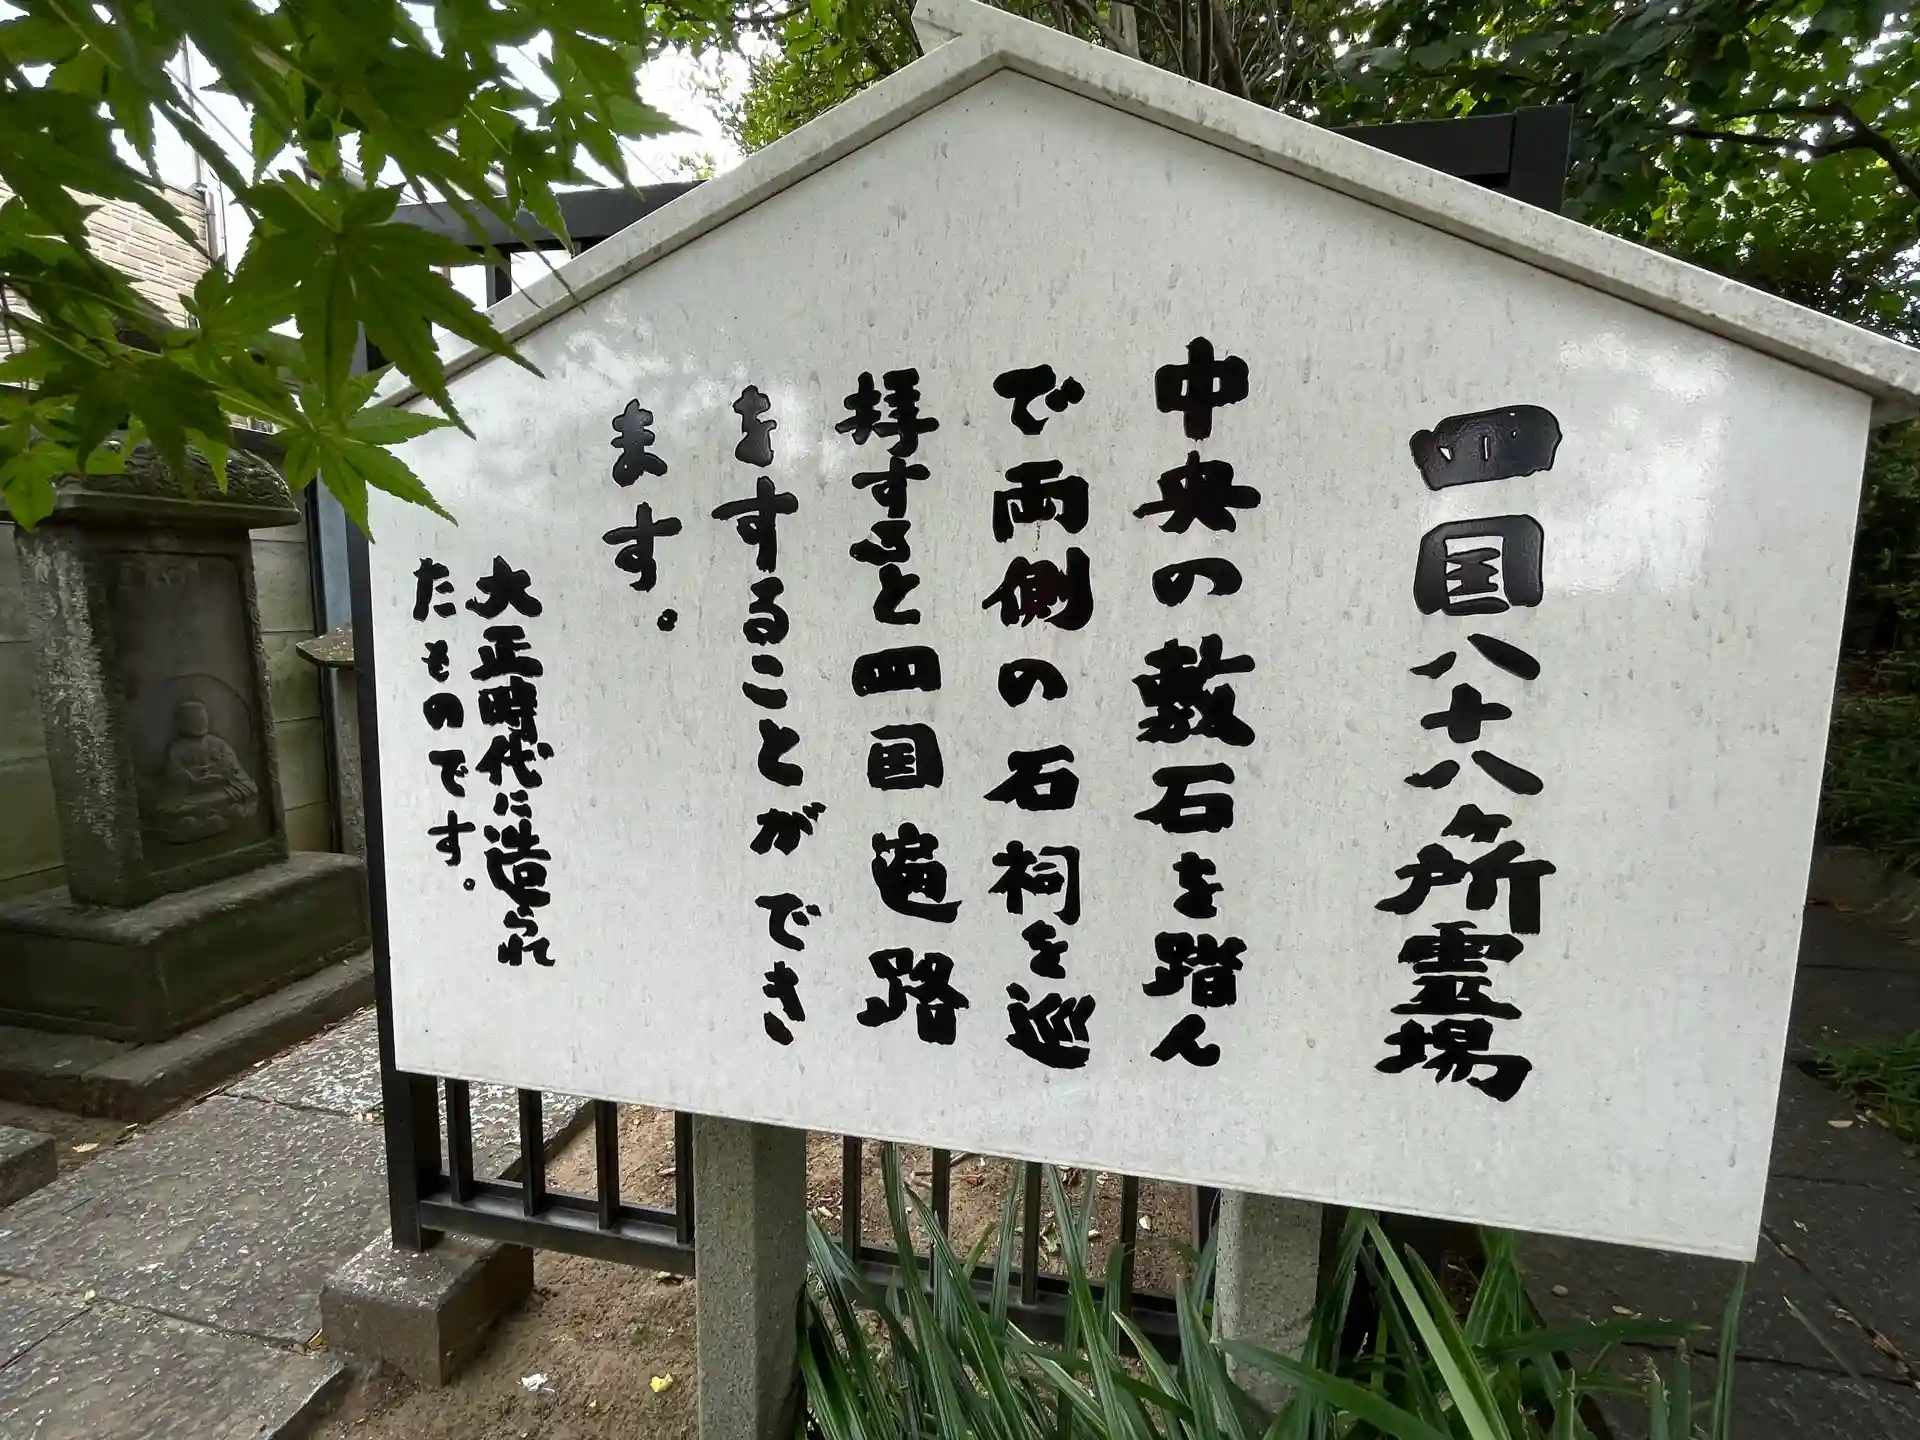 四国八十八ヶ所霊場
中央の敷石を踏ん
で両側の石祠を巡
拝すると四国遍路
をすることができ
ます。
大正時代に造られ
たものです。